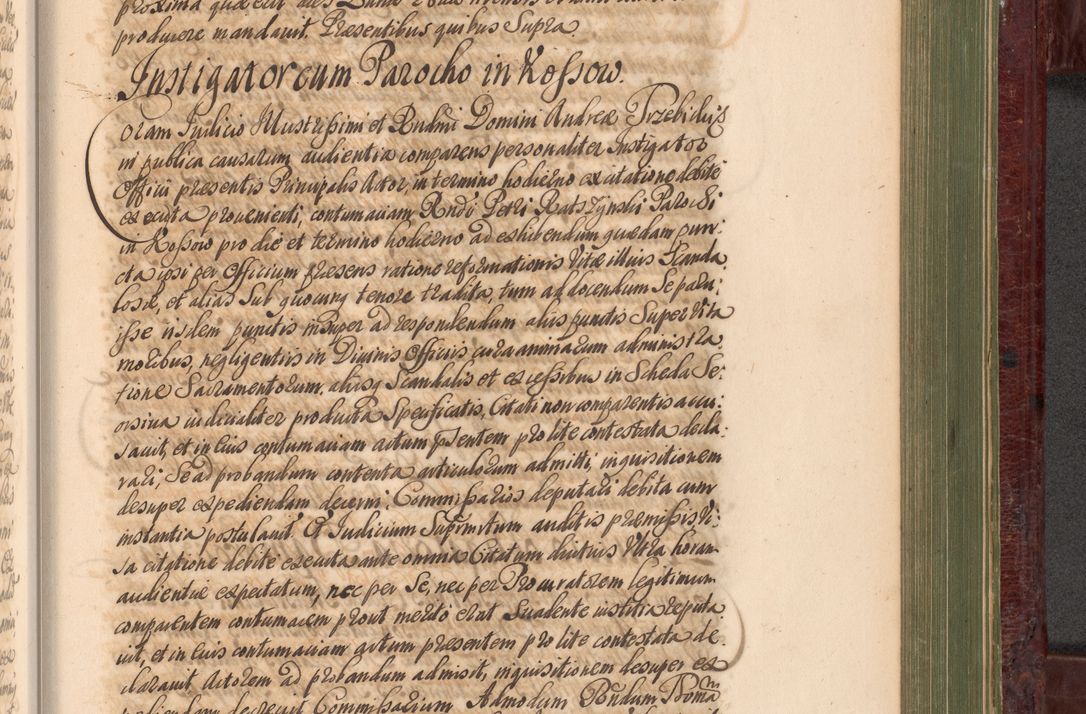 produere mandauit. Præsentibus quibus Supra.
Instigator cum Parocho in Kossow.
Coram Iudicio Illustrissimi et Rndmi Domini Andreæ Trzebicki
in publica causarum audientia comparens personaliter Instigator
Officii præsentis Principalis Actor, in termino hodierno ex citatione debite
executa prouenienti, contumaciam Rndi Petri Ratszynski Parochi
in Kossow pro die et termino hodierno ad exhibendum quædam pun:
cta ipsi per Officium præsens ratione reformationis Vitæ illius Scanda
losæ, et alias Sub quocunq tenore tradita, tum ad docendum Se paru:
isse iisdem punctis insuper ad respondendum aliis punctis Super Vita
moribus, negligentiis in Diuinis Officiis, cura animarum administra
tione Sacramentorum, aliisq Scandalis et excessibus in Scheda Se:
orsiua iudicialiter producta Specificatis, Citati non comparentis accu:
sauit, et in eius contumaciam actum psentem pro lite contestata decla:
rari, Se ad probandum contenta articulorum admitti, inquisitionem
desuper expediendam decerni, Commissarios deputari debita cum
instantia postulauit. Et Iudicium Suprmtum auditis præmissis, Vi:
sa citatione debite executa ante omnia Citatum diutius Vltra horam
audientiæ expectatum, nec per Se, nec per Procuratorem legitimum
comparentem contumacem prout merito erat Suadente iustitia reputa
uit, et in eius contumaciam actum præsentem pro lite contestata de
clarauit Actorem ad probandum admisit, inquisitionem desuper ex
pediendam decreuit Commissarium Admodum Rndum Thomā